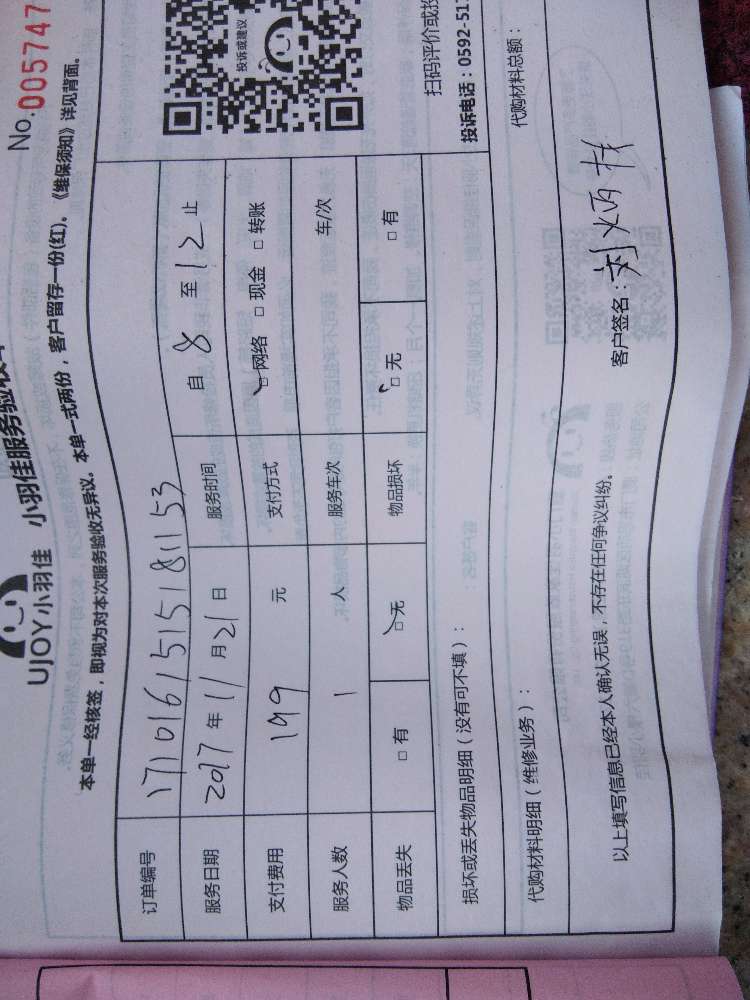 No.005747
UJOY小羽佳 小羽佳服务验收单
本单一经核签，即视为对本次服务验收无异议。本单一式两份，客户留存一份(红)。《维保须知》详见背面。
订单编号 1710161515181153
服务日期 2017年11月21日 服务时间 自8至12止
支付费用 199元 支付方式 ☑网络 □现金 □转账
服务人数 1人 服务车次 车/次
物品丢失 □有 ☑无 物品损坏 ☑无 □有
投诉或建议
扫码评价或投
投诉电话：0592-517
损坏或丢失物品明细（没有可不填）：
代购材料明细（维修业务）： 代购材料总额：
以上填写信息已经本人确认无误，不存在任何争议纠纷。 客户签名：刘炳